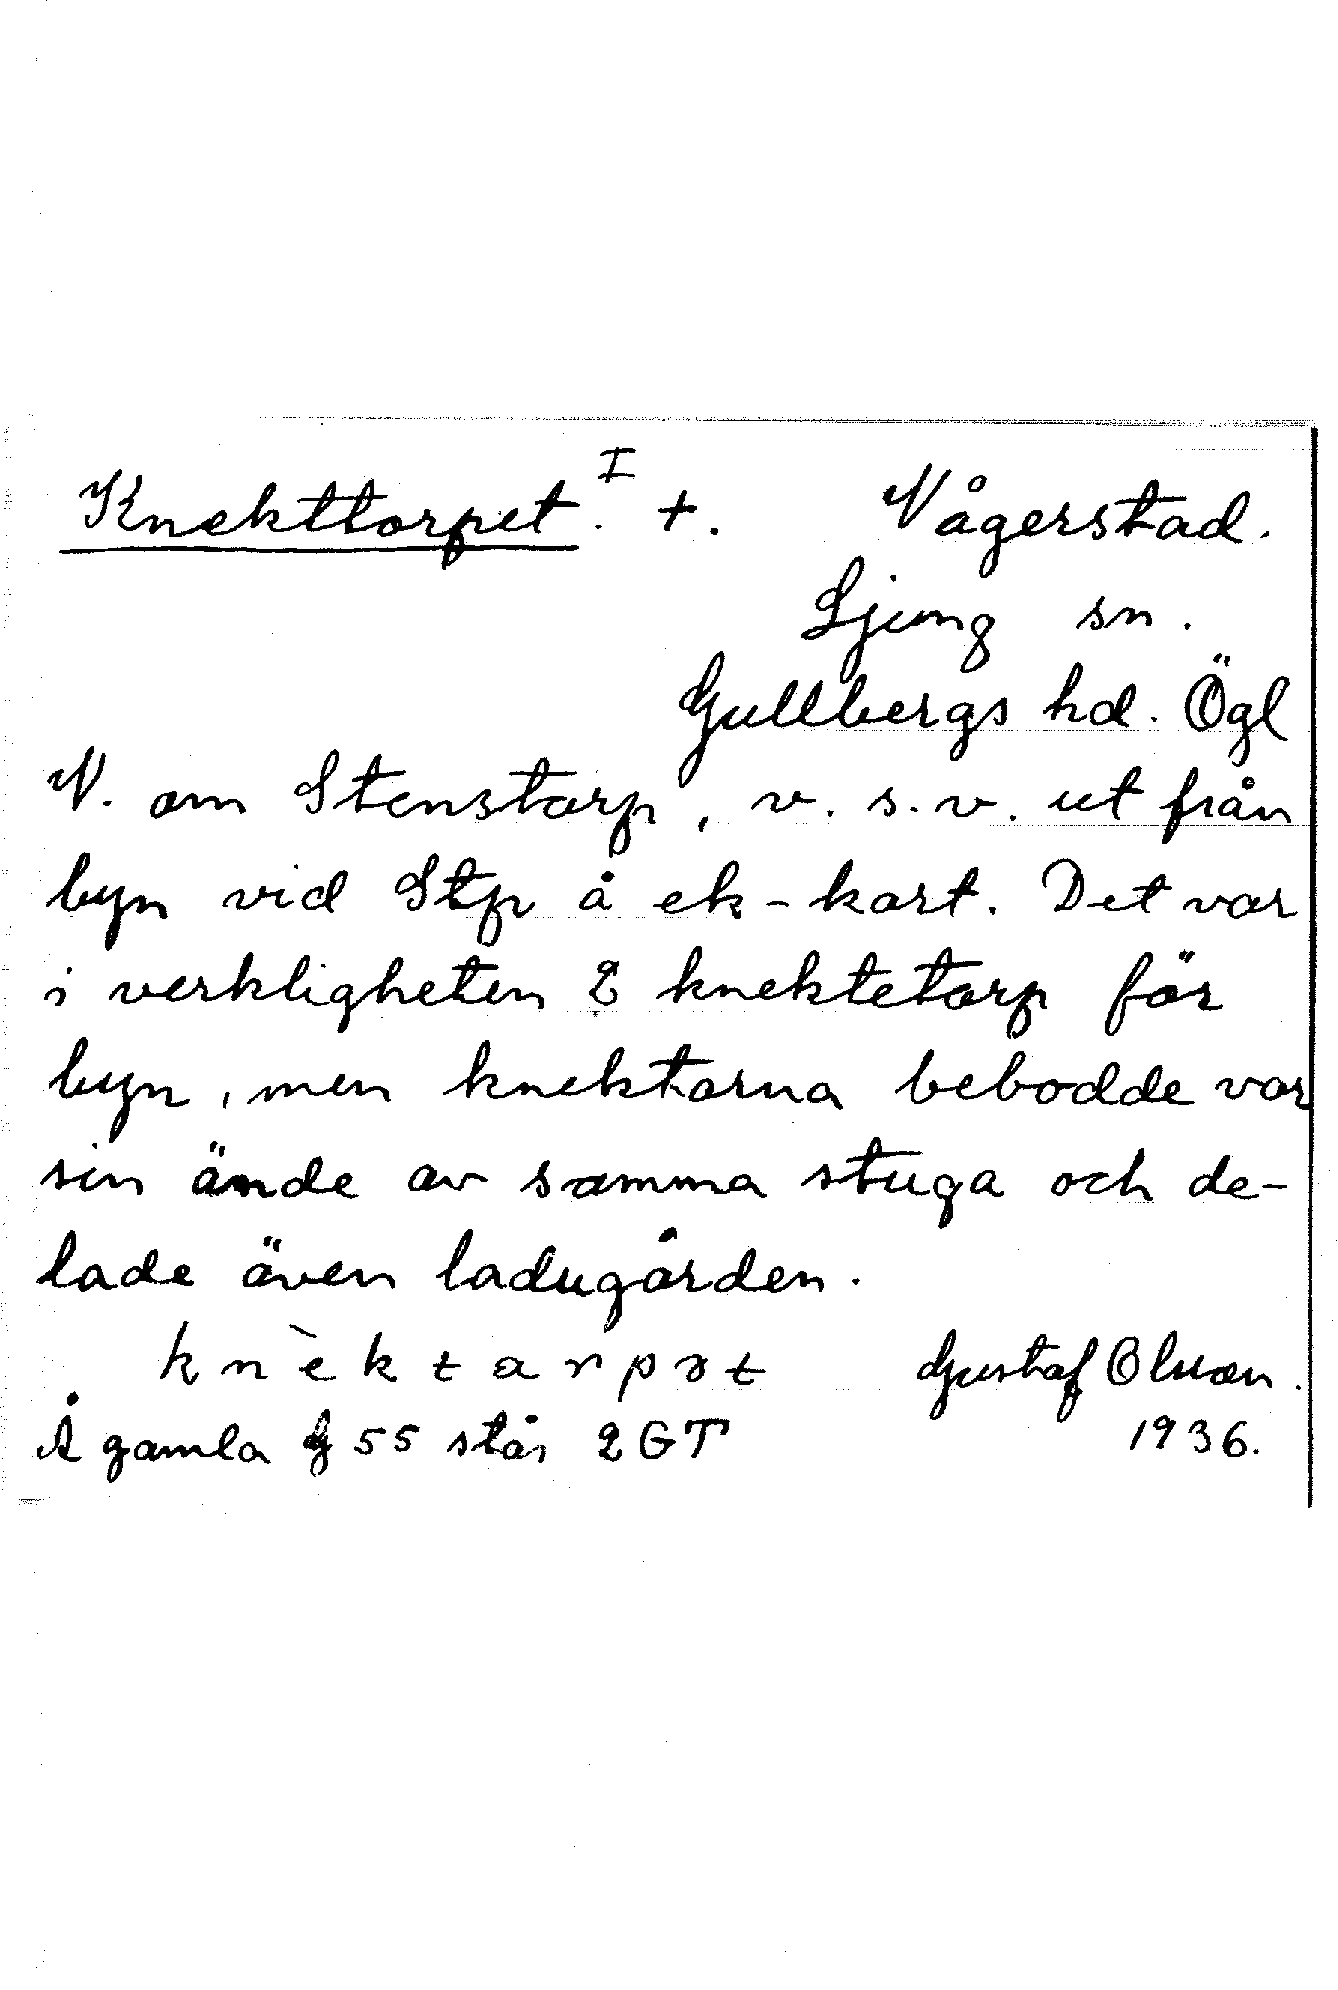 Knekttorpet. I +. Vågerstad.
Ljung sn.
Gullbergs hd. Ögl
N. om Stenstorp, v. s. v. ut från
byn vid Stp å ek-kart. Det var
i verkligheten 2 knektetorp för
byn, men knektarna bebodde var
sin ände av samma stuga och de-
lade även ladugården.
knèktarpət Gustaf Olsson.
Å gamla G 55 står 2 GT 1936.